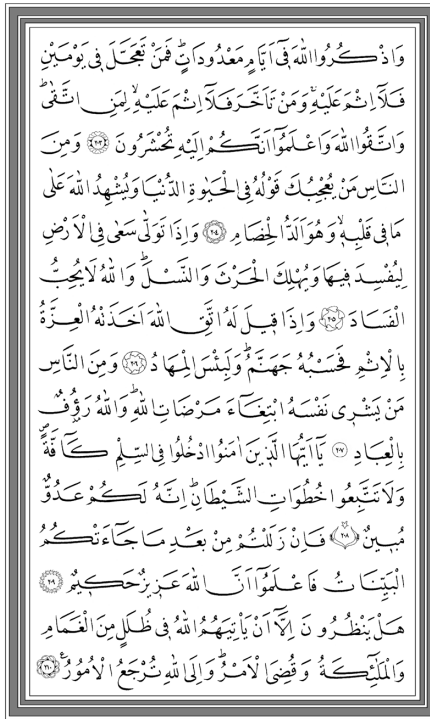 وَاذْكُرُوا اللّٰهَ فٖٓى اَيَّامٍ مَعْدُودَاتٍؕ فَمَنْ تَعَجَّلَ فٖى يَوْمَيْنِ
فَلَٓا اِثْمَ عَلَيْهِۚ وَمَنْ تَاَخَّرَ فَلَٓا اِثْمَ عَلَيْهِۙ لِمَنِ اتَّقٰىؕ
وَاتَّقُوا اللّٰهَ وَاعْلَمُٓوا اَنَّكُمْ اِلَيْهِ تُحْشَرُونَ ﴿٢٠٣﴾ وَمِنَ
النَّاسِ مَنْ يُعْجِبُكَ قَوْلُهُ فِى الْحَيٰوةِ الدُّنْيَا وَيُشْهِدُ اللّٰهَ عَلٰى
مَا فٖى قَلْبِهٖۙ وَهُوَ اَلَدُّ الْخِصَامِ ﴿٢٠٤﴾ وَاِذَا تَوَلّٰى سَعٰى فِى الْاَرْضِ
لِيُفْسِدَ فٖيهَا وَيُهْلِكَ الْحَرْثَ وَالنَّسْلَؕ وَاللّٰهُ لَا يُحِبُّ
الْفَسَادَ ﴿٢٠٥﴾ وَاِذَا قٖيلَ لَهُ اتَّقِ اللّٰهَ اَخَذَتْهُ الْعِزَّةُ
بِالْاِثْمِ فَحَسْبُهُ جَهَنَّمُؕ وَلَبِئْسَ الْمِهَادُ ﴿٢٠٦﴾ وَمِنَ النَّاسِ
مَنْ يَشْرٖى نَفْسَهُ ابْتِغَٓاءَ مَرْضَاتِ اللّٰهِؕ وَاللّٰهُ رَؤُفٌ
بِالْعِبَادِ ﴿٢٠٧﴾ يَٓا اَيُّهَا الَّذٖينَ اٰمَنُوا ادْخُلُوا فِى السِّلْمِ كَٓافَّةًࣕ
وَلَا تَتَّبِعُوا خُطُوَاتِ الشَّيْطَانِؕ اِنَّهُ لَكُمْ عَدُوٌّ
مُبٖينٌ ﴿٢٠٨﴾ فَاِنْ زَلَلْتُمْ مِنْ بَعْدِ مَا جَٓاءَتْكُمُ
الْبَيِّنَاتُ فَاعْلَمُٓوا اَنَّ اللّٰهَ عَزٖيزٌ حَكٖيمٌ ﴿٢٠٩﴾
هَلْ يَنْظُرُونَ اِلَّٓا اَنْ يَأْتِيَهُمُ اللّٰهُ فٖى ظُلَلٍ مِنَ الْغَمَامِ
وَالْمَلٰٓئِكَةُ وَقُضِىَ الْاَمْرُؕ وَاِلَى اللّٰهِ تُرْجَعُ الْاُمُورُ ﴿٢١٠﴾